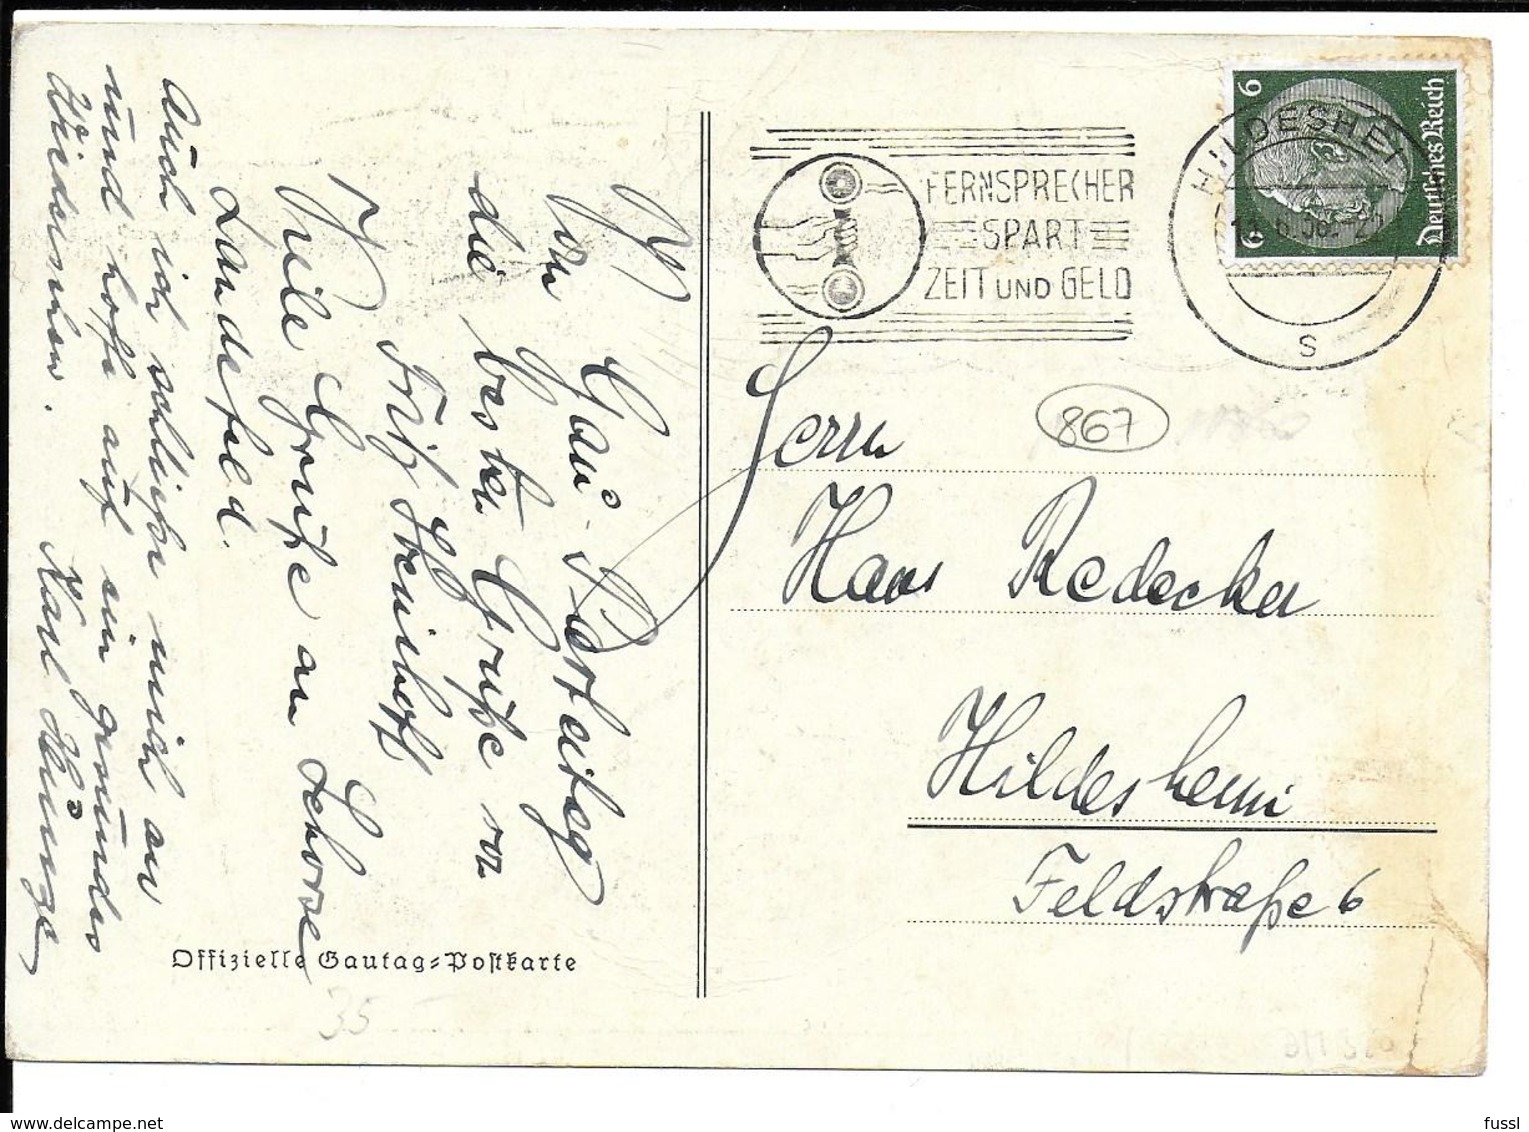 Vom Gau-Parteitag
die besten Grüße von
Fritz Steinhoff
Viele Grüße an
Landefeld.
Auch ich schließe mich an
und hoffe auf ein gesundes
Wiedersehen.
Offizielle Gautag=Postkarte
35
FERNSPRECHER
SPART
ZEIT UND GELD
HILDESHEI
S
6
6
Deutsches Reich
867
Herrn
Hans Redecker
Hildesheim
Feldstraße 6
delcampe.net
fussl